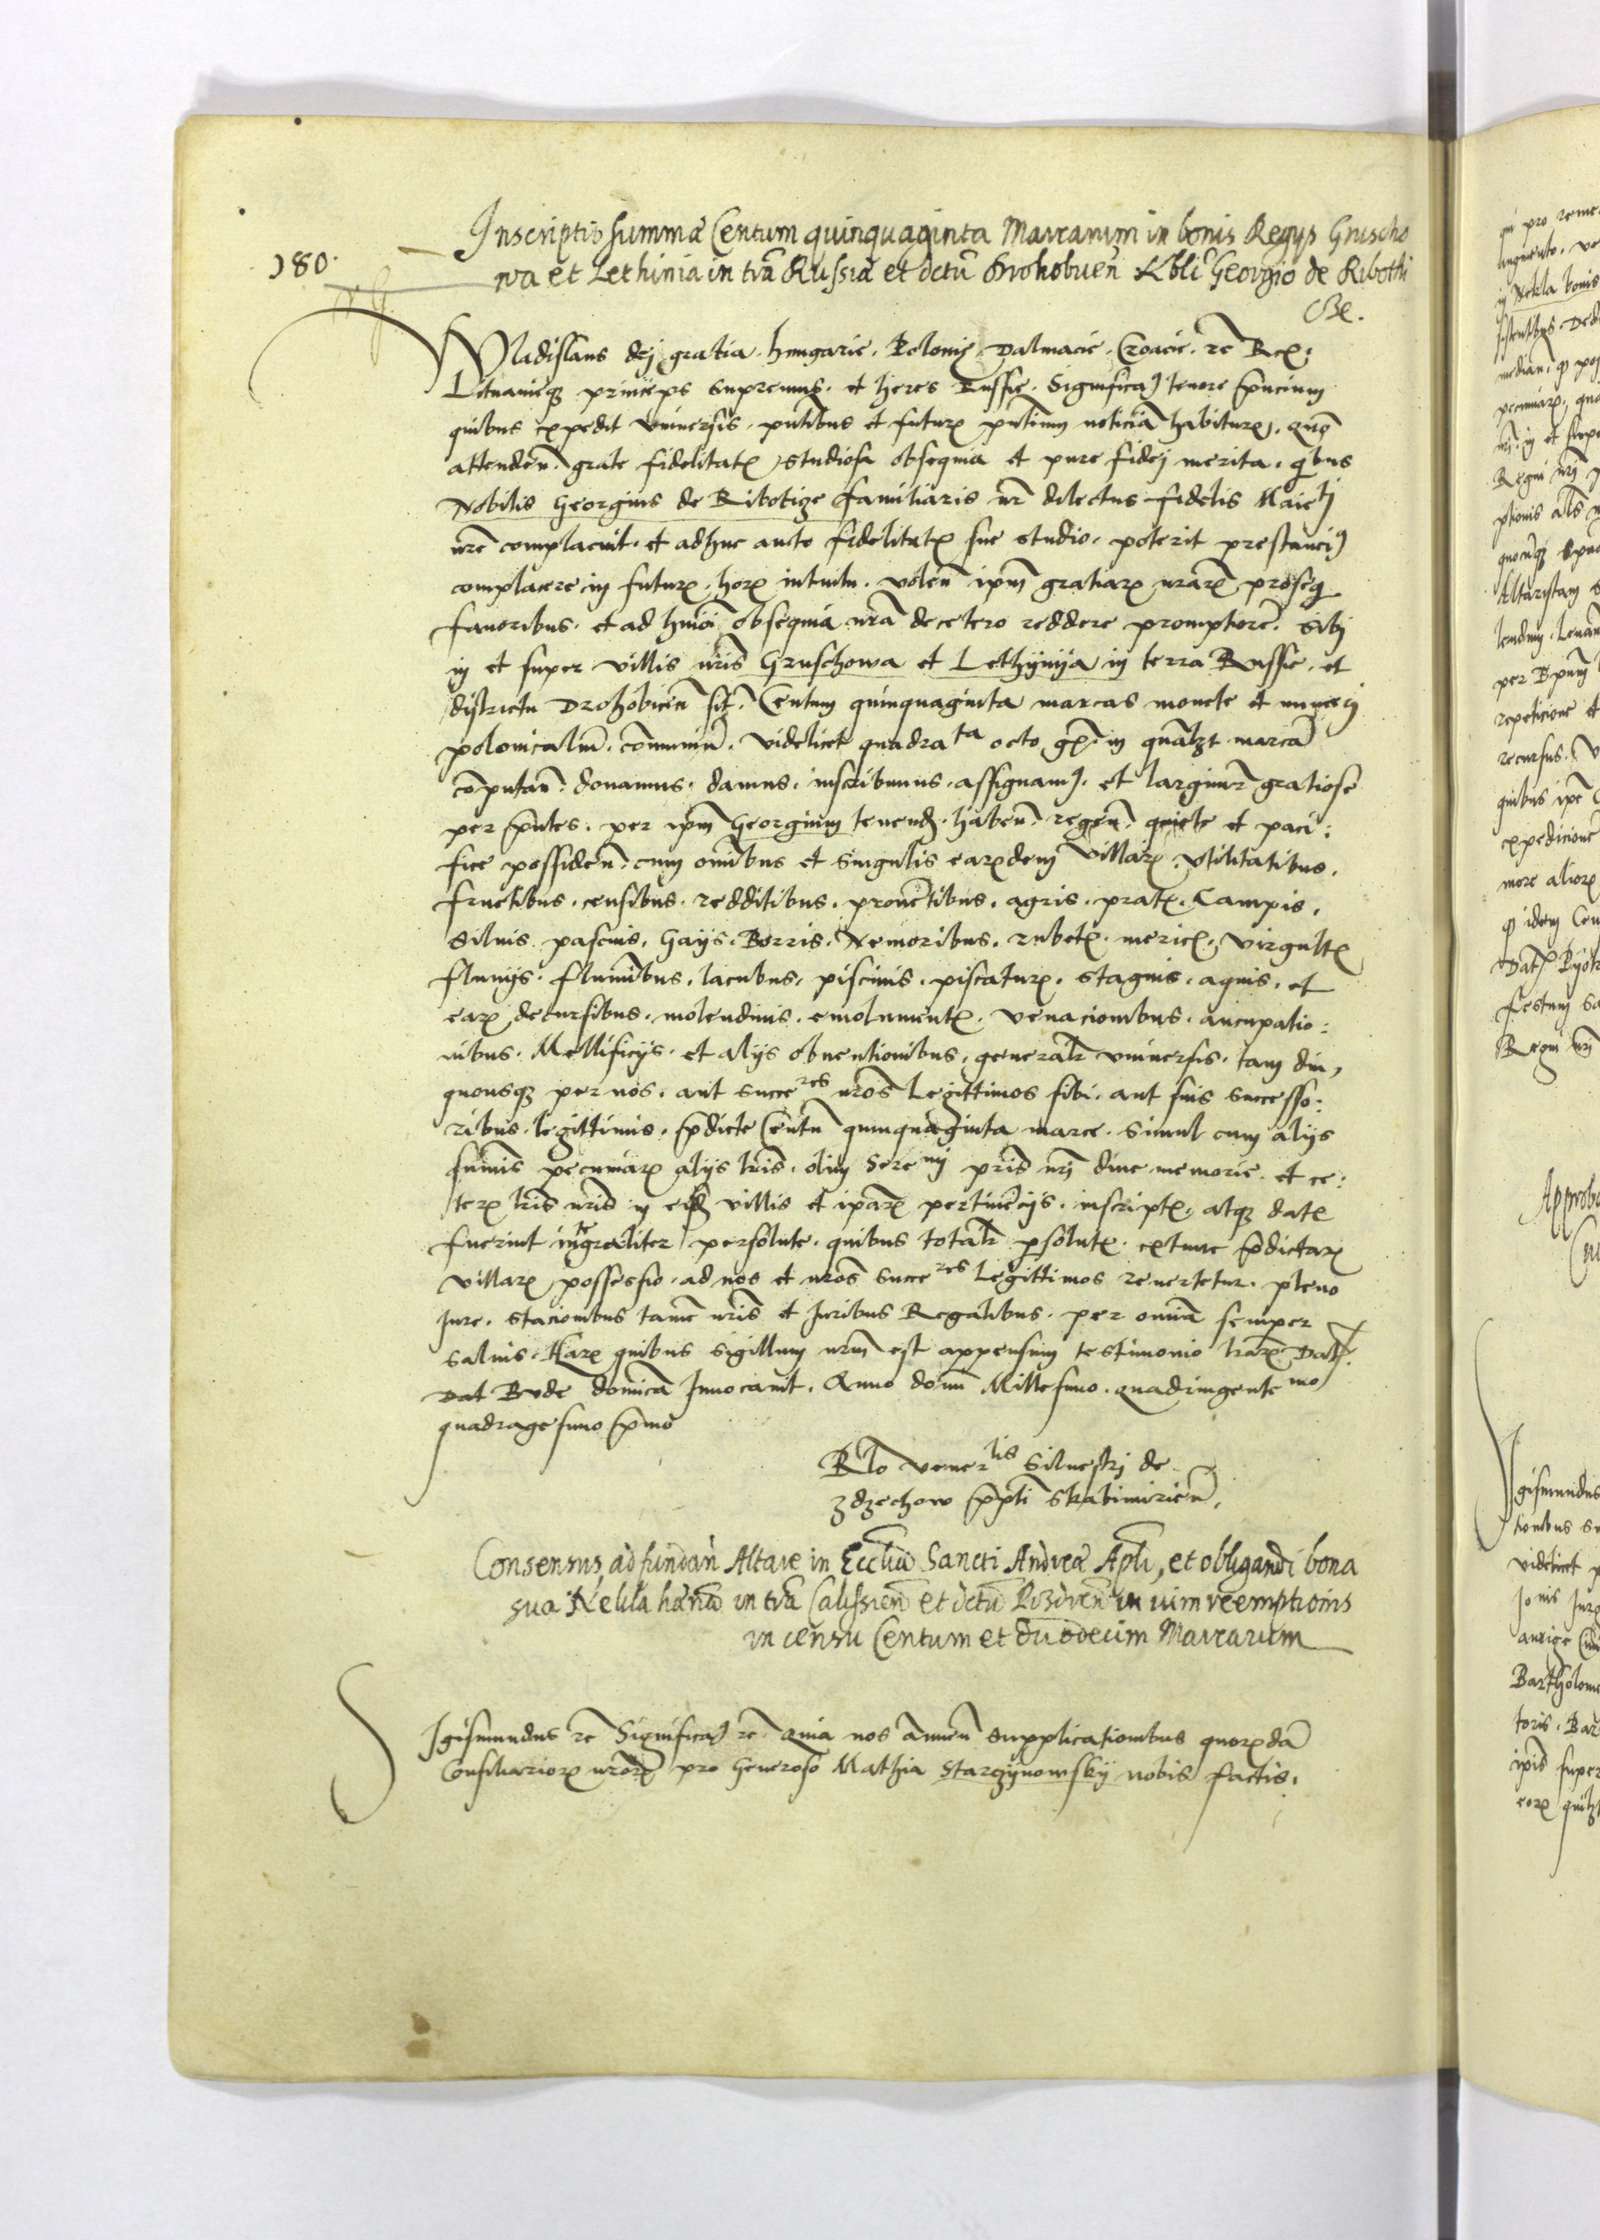 180.
Inscriptio summæ Centum quinquaginta Marcarum in bonis Regys Gruscho
wa et Lethinia in trā Russiæ et dctū Drohobicen̄ Nbli Georgio de Ribothi
cze.
Wladislaus dej gratia hungarie. Polonie Dalmacie. Croacie. rē Rex;
Lituanieqꝫ princeps supremus. et heres Russie. Significaꝯ tenore pn̄cium
quibus expedit vniuersis. pn̄tibus et futurꝭ pn̄tium noticiā habiturꝭ. quō
attenden̄. grate fidelitatꝭ studiosa obsequia et pure fidej merita. qbus
Nobilis Georgius de Ribotize familiaris nr̄ dilectus fidelis Maietj
nrē complacuit. et adhuc aucto fidelitatꝭ sue studio. poterit prestanciꝯ
complacere in futurꝭ. horꝭ intuitu. volen̄ ipm̄ gratiarꝭ nrārꝭ proseq
fauoribus. et ad hmōi obsequia nrā de cetero reddere promptiorē. sibj
in et super villis nrīs Gruschowa et Lethynya in terra Russie. et
districtu Drohobicen̄ sit̄. Centum quinquaginta marcas monete et numerj
polonicaliū. cōmuniū. videlicet quadrata octo gꝭ. in quālꝫt marcā
cōputan̄. donamus. damus. inscribimus. assignamꝯ. et largimr̄ gratiose
per pn̄tes. per ipm̄ Georgium tenend̄. haben̄. regen̄. quiete et paci:
fice possiden̄. cum om̄ibus et singulis earꝭdem villarꝭ. vtilitatibus.
fructibus. censibus. redditibus. prouētibus. agris. pratꝭ. Campis.
Siluis. pascuis. Gays. Borris. Nemoribus. rubetꝭ. mericꝭ. virgultꝭ
fluuijs. fluminibus. lacubus. piscinis. piscaturꝭ. stagnis. aquis. et
earꝭ decursibus. molendinis. emolumentꝭ. venacionibus. aucupatio:
nibus. Mellificijs. et alijs obuentionibus. generalr̄ vniuersis. tam diu,
quousqꝫ per nos. aut succeres nrōs Legittimos sibi. aut suis successo:
ribus. legittimis. pdicte Centū quinquaginta marce. simul cum alijs
summis pecuniarꝭ alijs lrīs. olim Serenj prīs nrj diue memorie et ce:
terꝭ lrīs nrīs in eisd̄ villis et ipārꝭ pertinēcijs. inscriptꝭ. atqꝫ datꝭ
fuerint integraliter persolute. quibus totalr̄ psolutꝭ. extunc pdictarꝭ
villarꝭ possessio. ad nos et nrōs succeres Legittimos reuertetur. pleno
Jure. stacionibus tamē nrīs et Juribus Regalibus. per om̄ia semper
saluis. Harꝭ quibus sigillum nrm̄ est appensum testimonio lrarꝭ Datꝭ.
Dat Bude domica Inuocauit. Anno domī Millesimo. quadringentesimo
quadragesimo pmo
Rlo venerlis Siluestrj de
Zdzechow ppti Skalmirien̄.
Consensus ad fundan̄ Altare in Ecclia Sancti Andreæ Apli, et obligandi bona
sua Nekla hærna in trā Calissien̄ et dctū Pisdren̄ in vim reemptionis
in censu Centum et duodecim Marcarum
Sigismundus rē Significaꝯ rē. Quia nos ānuen̄ supplicationibus quorꝭdā
Consiliariorꝭ nrōrꝭ pro Generoso Mathia Starzynowskij nobis factis.